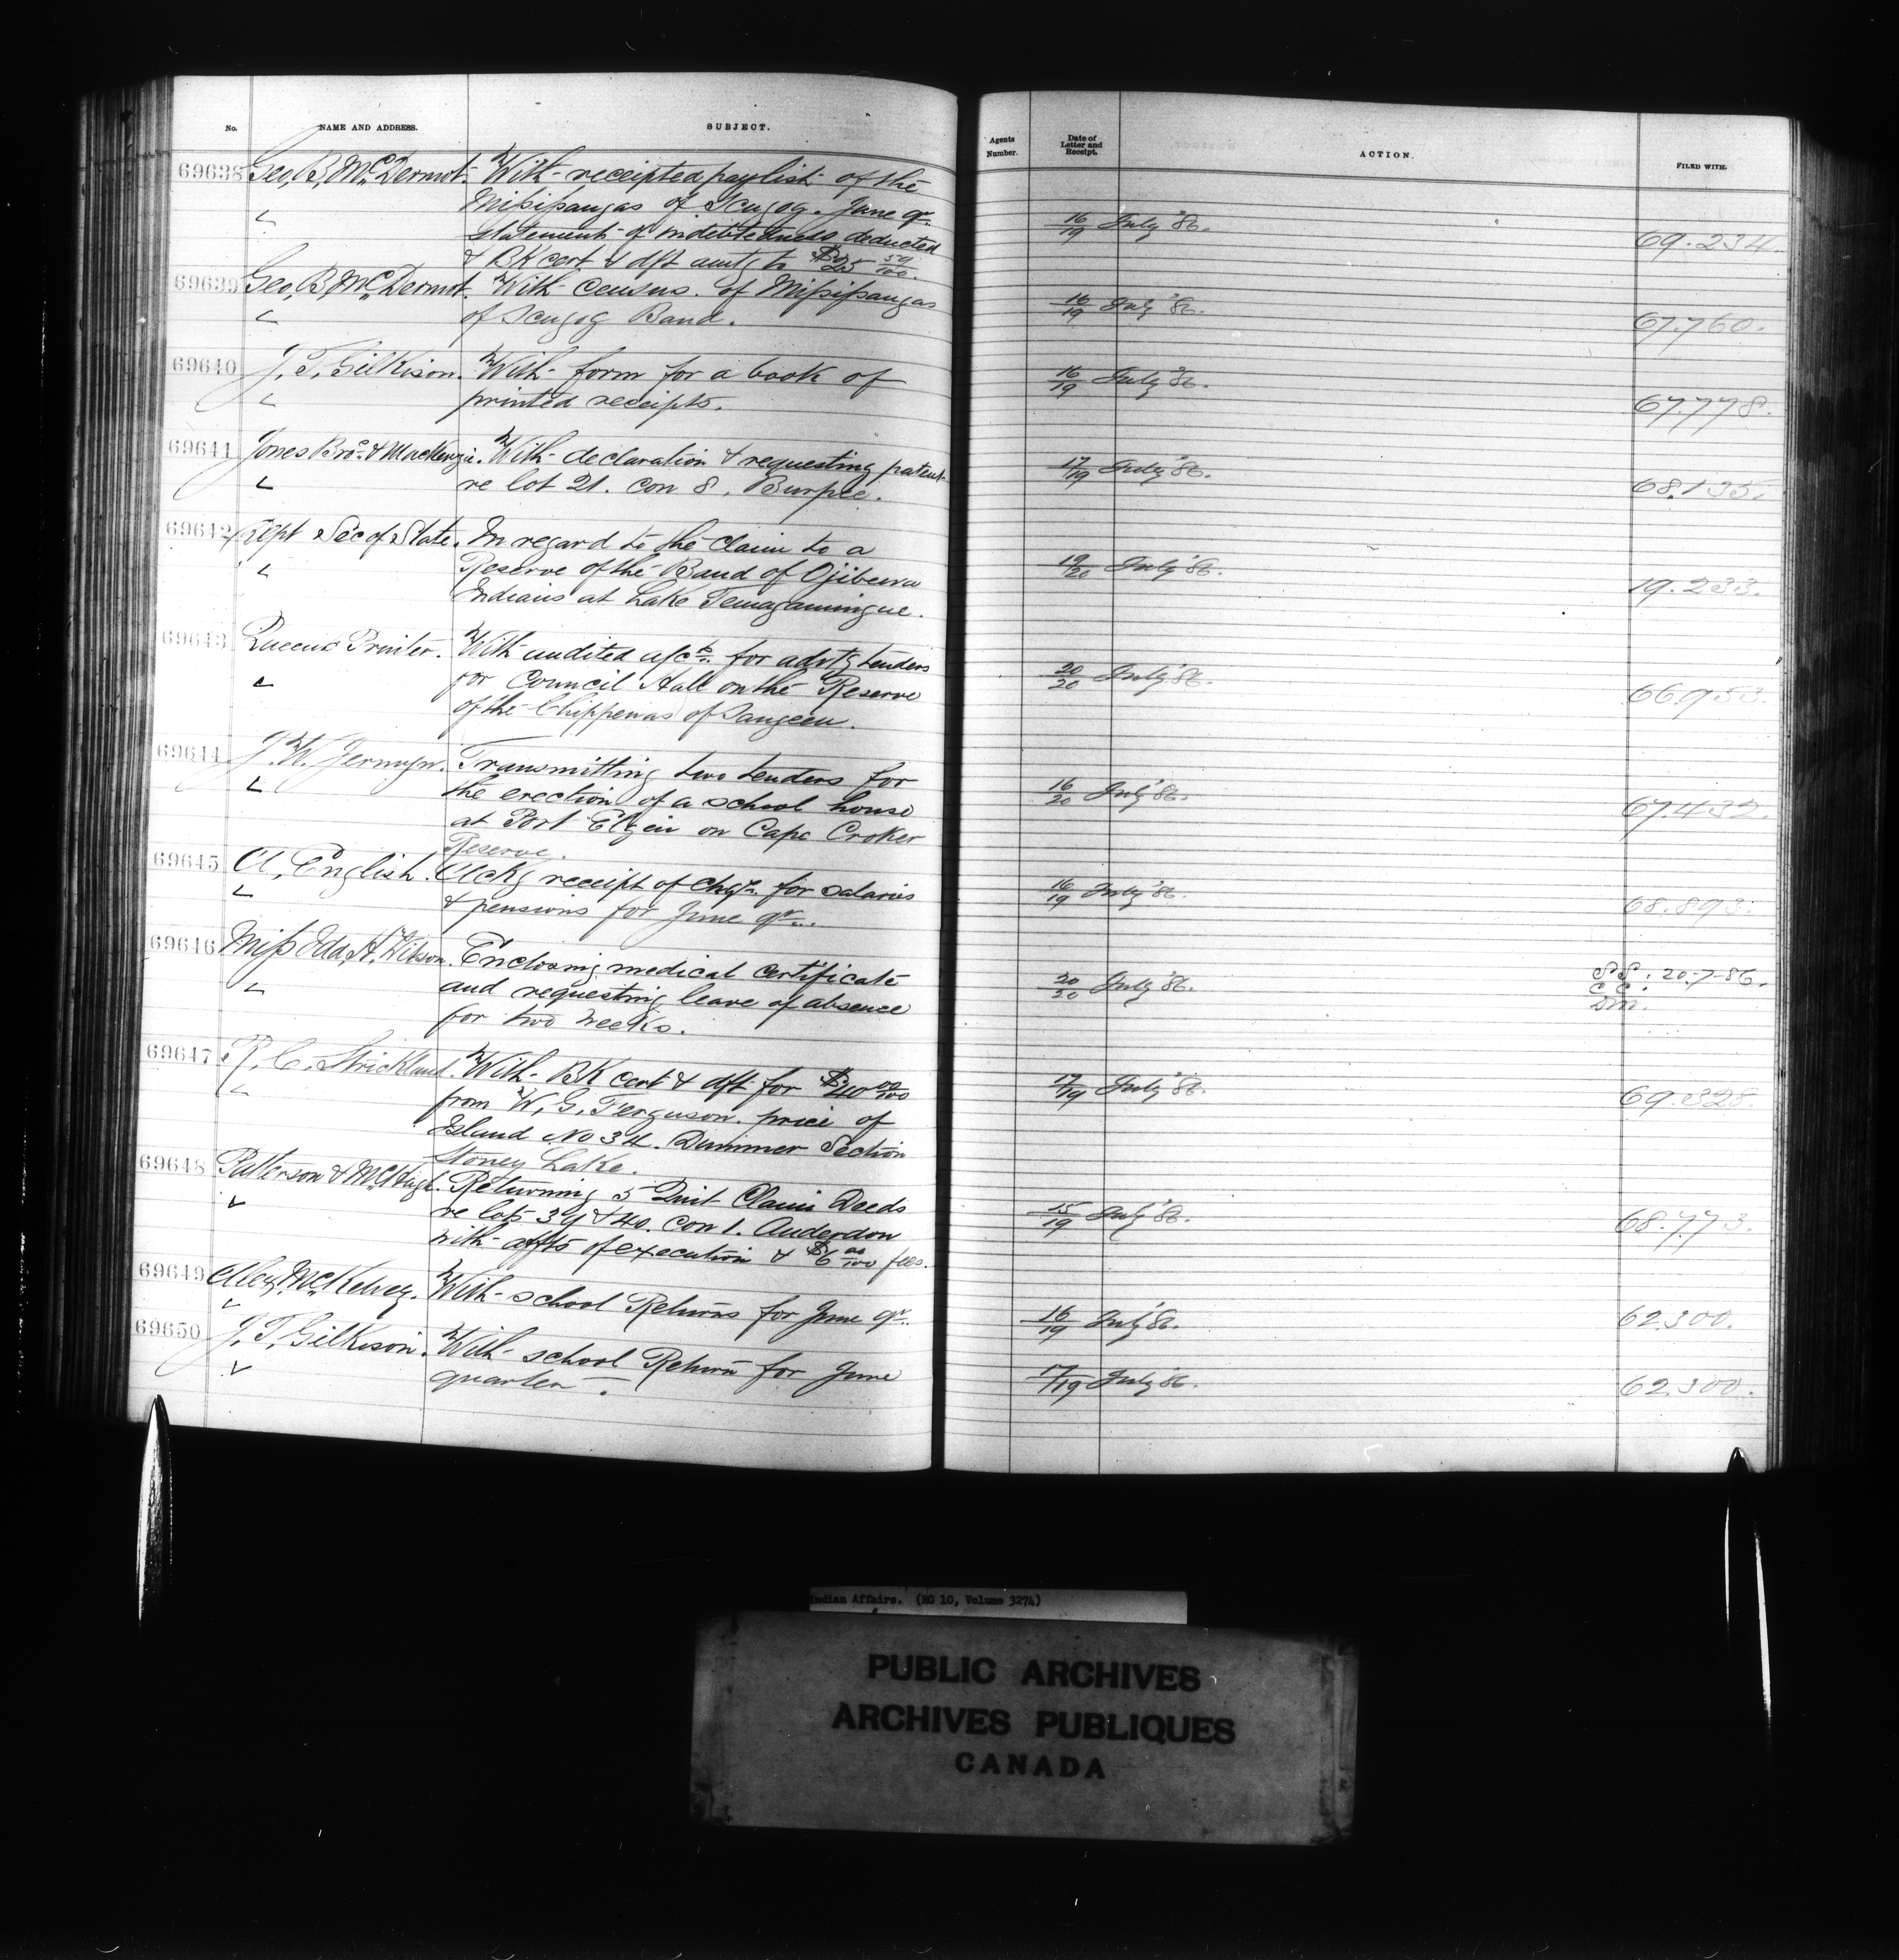 No. NAME AND ADDRESS. SUBJECT.
69638 Geo. B. McDermot. With receipted paylist of the
Missisaugas of Scugog. June qr.
statement of indebtedness deducted
& BK cert & dft amtg to $25 50/100.
69639 Geo. B. McDermot. With census of Missisaugas
of Scugog Band.
69640 J. T. Gilkison. With form for a book of
printed receipts.
69641 Jones Bros. & MacKenzie. With declaration & requesting patent
re lot 21. con 8. Burpee.
69642 Dept Sec of State. In regard to the claim to a
Reserve of the Band of Ojibewa
Indians at Lake Temagamingue.
69643 Queens Printer. With audited a/cts. for advtg tenders
for Council Hall on the Reserve
of the Chippewas of Saugeen.
69644 J. W. Jermyn. Transmitting two tenders for
the erection of a school house
at Port Elgin on Cape Croker
Reserve.
69645 A. English. Ackg receipt of chqs. for salaries
& pensions for June qr.
69646 Miss Ida H. Wilson. Enclosing medical certificate
and requesting leave of absence
for two weeks.
69647 R. C. Strickland. With BK cert & dft for $40 00/100
from W. G. Ferguson. price of
Island No 34. Dummer Section
Stoney Lake.
69648 Patterson & McHugh. Returning 5 Quit Claim Deeds
re lots 39 & 40. con 1. Anderdon
with affts of execution & $6 00/100 fees.
69649 Alex. McKelvey. With school Returns for June qr.
69650 J. T. Gilkison. With school Return for June
quarter.
Agents Number. Date of Letter and Receipt. ACTION. FILED WITH.
16/19 July '86. 69.234.
16/19 July '86. 67.760.
16/19 July '86. 67.778.
17/19 July '86. 68.135.
19/20 July '86. 19.233.
20/20 July '86. 66953.
16/20 July '86. 67.432.
16/19 July '86. 68.893.
20/20 July '86. SS: 20-7-86.
CC:
DM.
17/19 July '86. 69.328.
15/19 July '86. 68.773.
16/19 July '86. 62.300.
17/19 July '86. 62.300.
Indian Affairs. (RG 10, Volume 3274)
PUBLIC ARCHIVES
ARCHIVES PUBLIQUES
CANADA